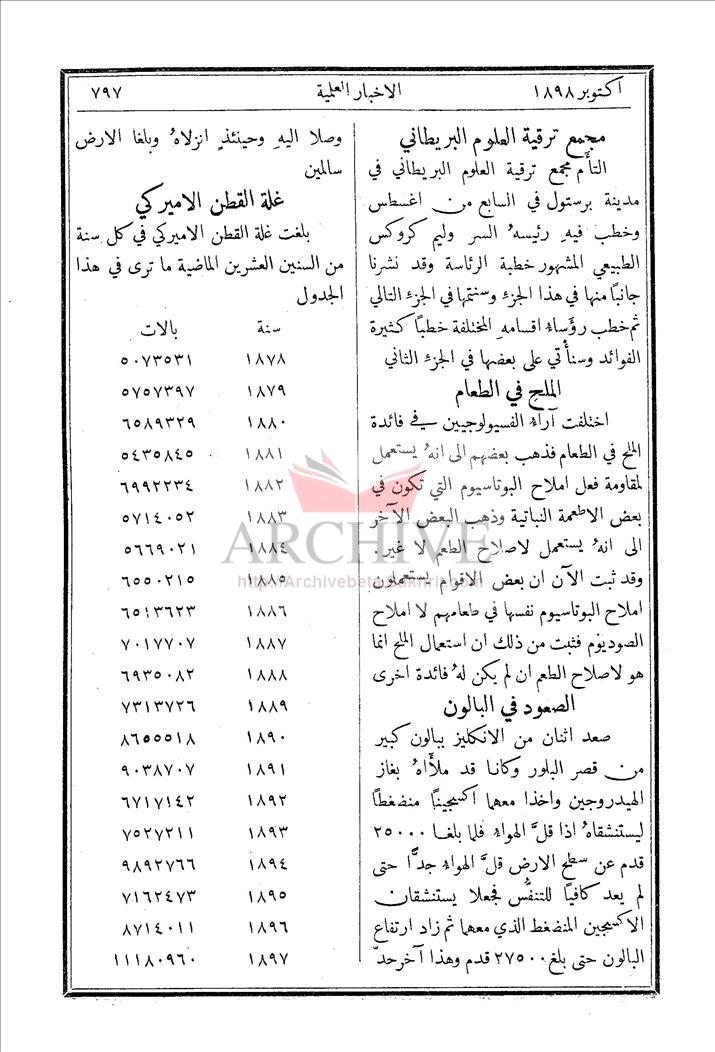 اكتوبر ١٨٩٨ الاخبار العلمية ٧٩٧
مجمع ترقية العلوم البريطاني
التأَم مجمع ترقية العلوم البريطاني في
مدينة برستول في السابع من اغسطس
وخطب فيهِ رئيسهُ السر وليم كروكس
الطبيعي المشهور خطبة الرئاسة وقد نشرنا
جانبًا منها في هذا الجزءِ وسنتمها في الجزءِ التالي
ثم خطب رؤَساءُ اقسامهِ المختلفة خطبًا كثيرة
الفوائد وسنأْتي على بعضها في الجزءِ الثاني
الملح في الطعام
اختلفت آراءُ الفسيولوجيين في فائدة
الملح في الطعام فذهب بعضهم الى انهُ يستعمل
لمقاومة فعل املاح البوتاسيوم التي تكون في
بعض الاطعمة النباتية وذهب البعض الآخر
الى انهُ يستعمل لاصلاح الطعم لا غير.
وقد ثبت الآن ان بعض الاقوام يستعملون
املاح البوتاسيوم نفسها في طعامهم لا املاح
الصوديوم فثبت من ذلك ان استعمال الملح انما
هو لاصلاح الطعم ان لم يكن لهُ فائدة اخرى
الصعود في البالون
صعد اثنان من الانكليز ببالون كبير
من قصر البلور وكانا قد ملأَاهُ بغاز
الهيدروجين واخذا معهما اكسجينًا منضغطًا
ليستنشقاهُ اذا قلَّ الهواءُ فلما بلغا ٢٥٠٠٠
قدم عن سطح الارض قلَّ الهواءُ جدًّا حتى
لم يعد كافيًا للتنفُّس فجعلا يستنشقان
الاكسجين المنضغط الذي معهما ثم زاد ارتفاع
البالون حتى بلغ ٢٧٥٠٠ قدم وهذا آخر حدّ
وصلا اليهِ وحينئذٍ انزلاهُ وبلغا الارض
سالمين
غلة القطن الاميركي
بلغت غلة القطن الاميركي في كل سنة
من السنين العشرين الماضية ما ترى في هذا
الجدول
سنة بالات
١٨٧٨ ٥٠٧٣٥٣١
١٨٧٩ ٥٧٥٧٣٩٧
١٨٨٠ ٦٥٨٩٣٢٩
١٨٨١ ٥٤٣٥٨٤٥
١٨٨٢ ٦٩٩٢٢٣٤
١٨٨٣ ٥٧١٤٠٥٢
١٨٨٤ ٥٦٦٩٠٢١
١٨٨٥ ٦٥٥٠٢١٥
١٨٨٦ ٦٥١٣٦٢٣
١٨٨٧ ٧٠١٧٧٠٧
١٨٨٨ ٦٩٣٥٠٨٢
١٨٨٩ ٧٣١٣٧٢٦
١٨٩٠ ٨٦٥٥٥١٨
١٨٩١ ٩٠٣٨٧٠٧
١٨٩٢ ٦٧١٧١٤٢
١٨٩٣ ٧٥٢٧٢١١
١٨٩٤ ٩٨٩٢٧٦٦
١٨٩٥ ٧١٦٢٤٧٣
١٨٩٦ ٨٧١٤٠١١
١٨٩٧ ١١١٨٠٩٦٠
ARCHIVE